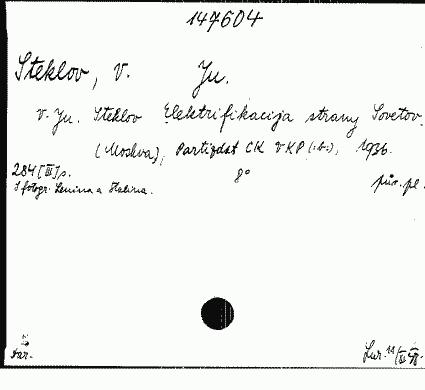 147604
Steklov, V. Ju.
V. Ju. Steklov Elektrifikacija strany Sovetov.
(Moskva), Partizdat CK VKP(b), 1936.
284 [III] s. 8° pův. pl.
S fotogr. Lenina a Stalina.
Dar.